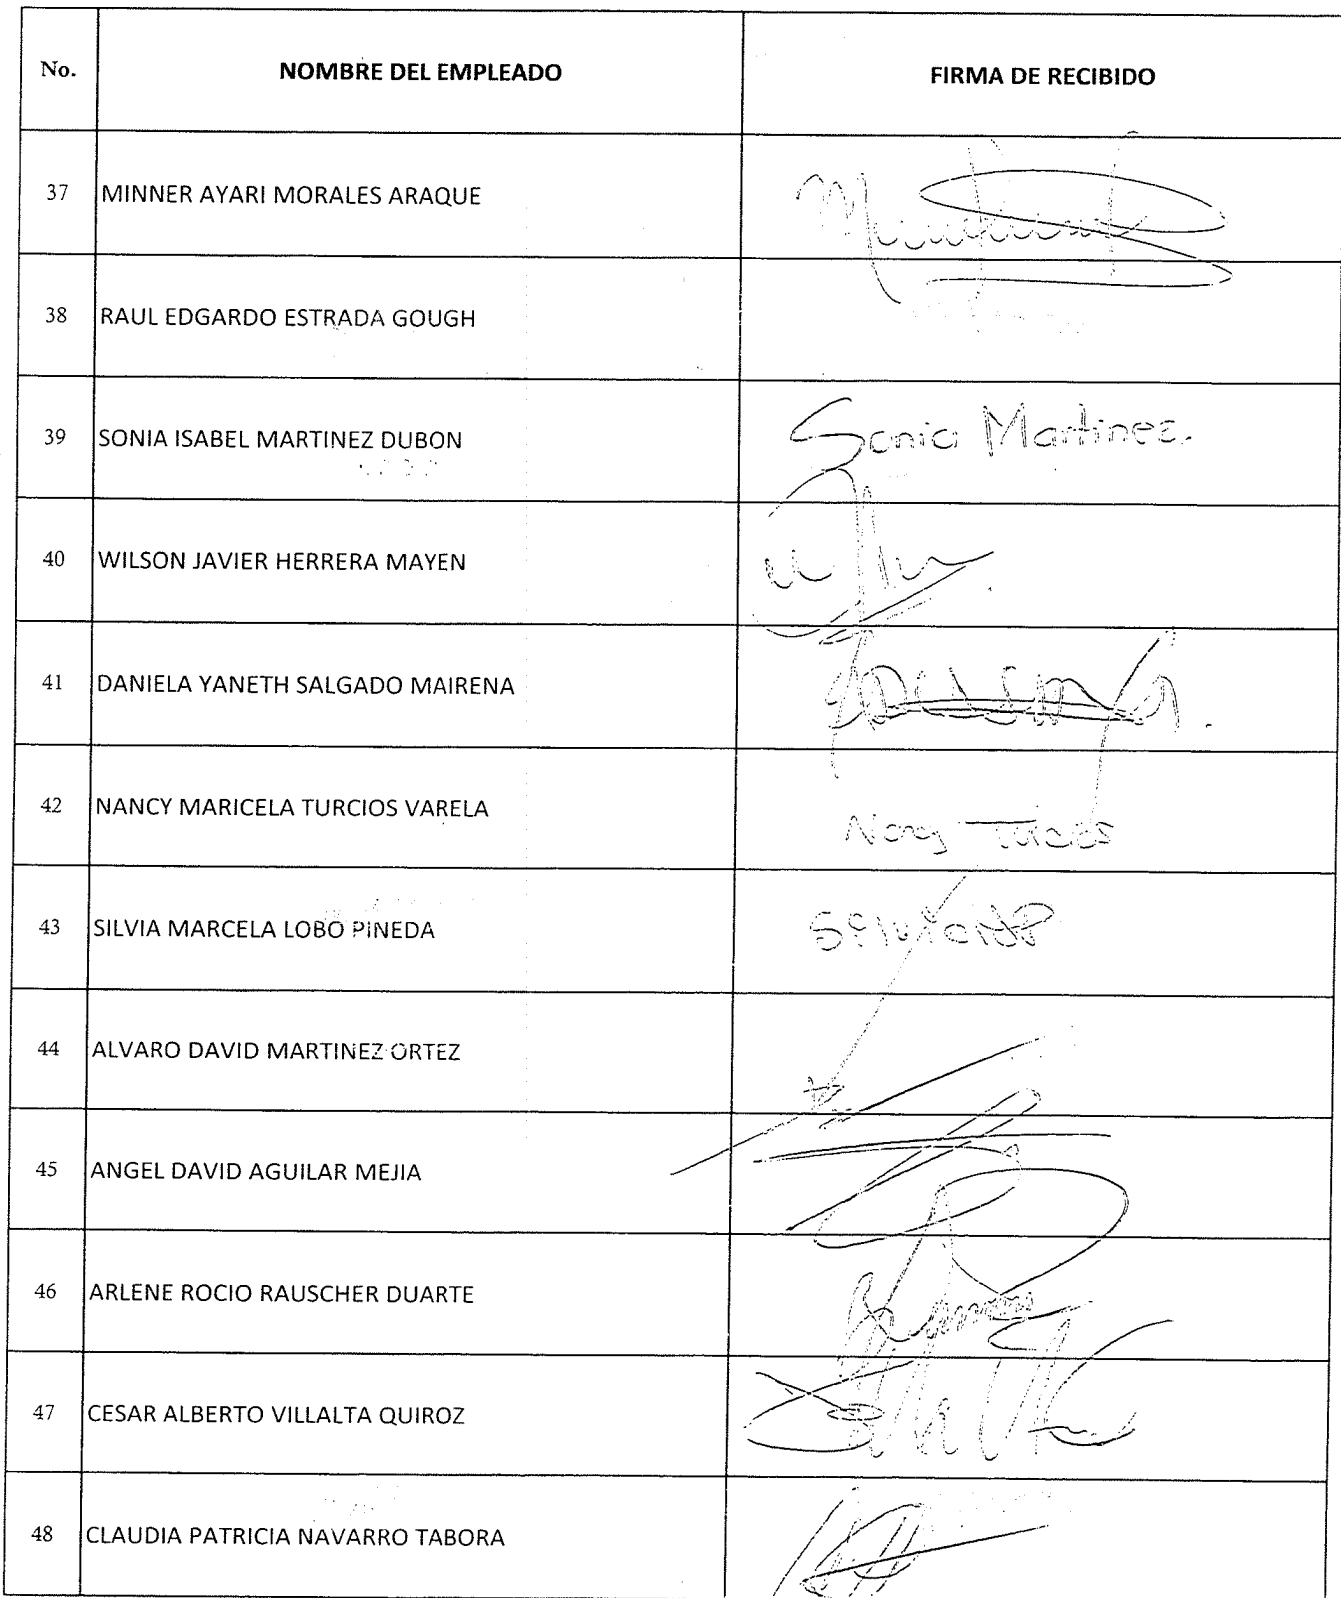 No. NOMBRE DEL EMPLEADO FIRMA DE RECIBIDO
37 MINNER AYARI MORALES ARAQUE
38 RAUL EDGARDO ESTRADA GOUGH
39 SONIA ISABEL MARTINEZ DUBON Sonia Martinez.
40 WILSON JAVIER HERRERA MAYEN
41 DANIELA YANETH SALGADO MAIRENA
42 NANCY MARICELA TURCIOS VARELA
43 SILVIA MARCELA LOBO PINEDA
44 ALVARO DAVID MARTINEZ ORTEZ
45 ANGEL DAVID AGUILAR MEJIA
46 ARLENE ROCIO RAUSCHER DUARTE
47 CESAR ALBERTO VILLALTA QUIROZ
48 CLAUDIA PATRICIA NAVARRO TABORA